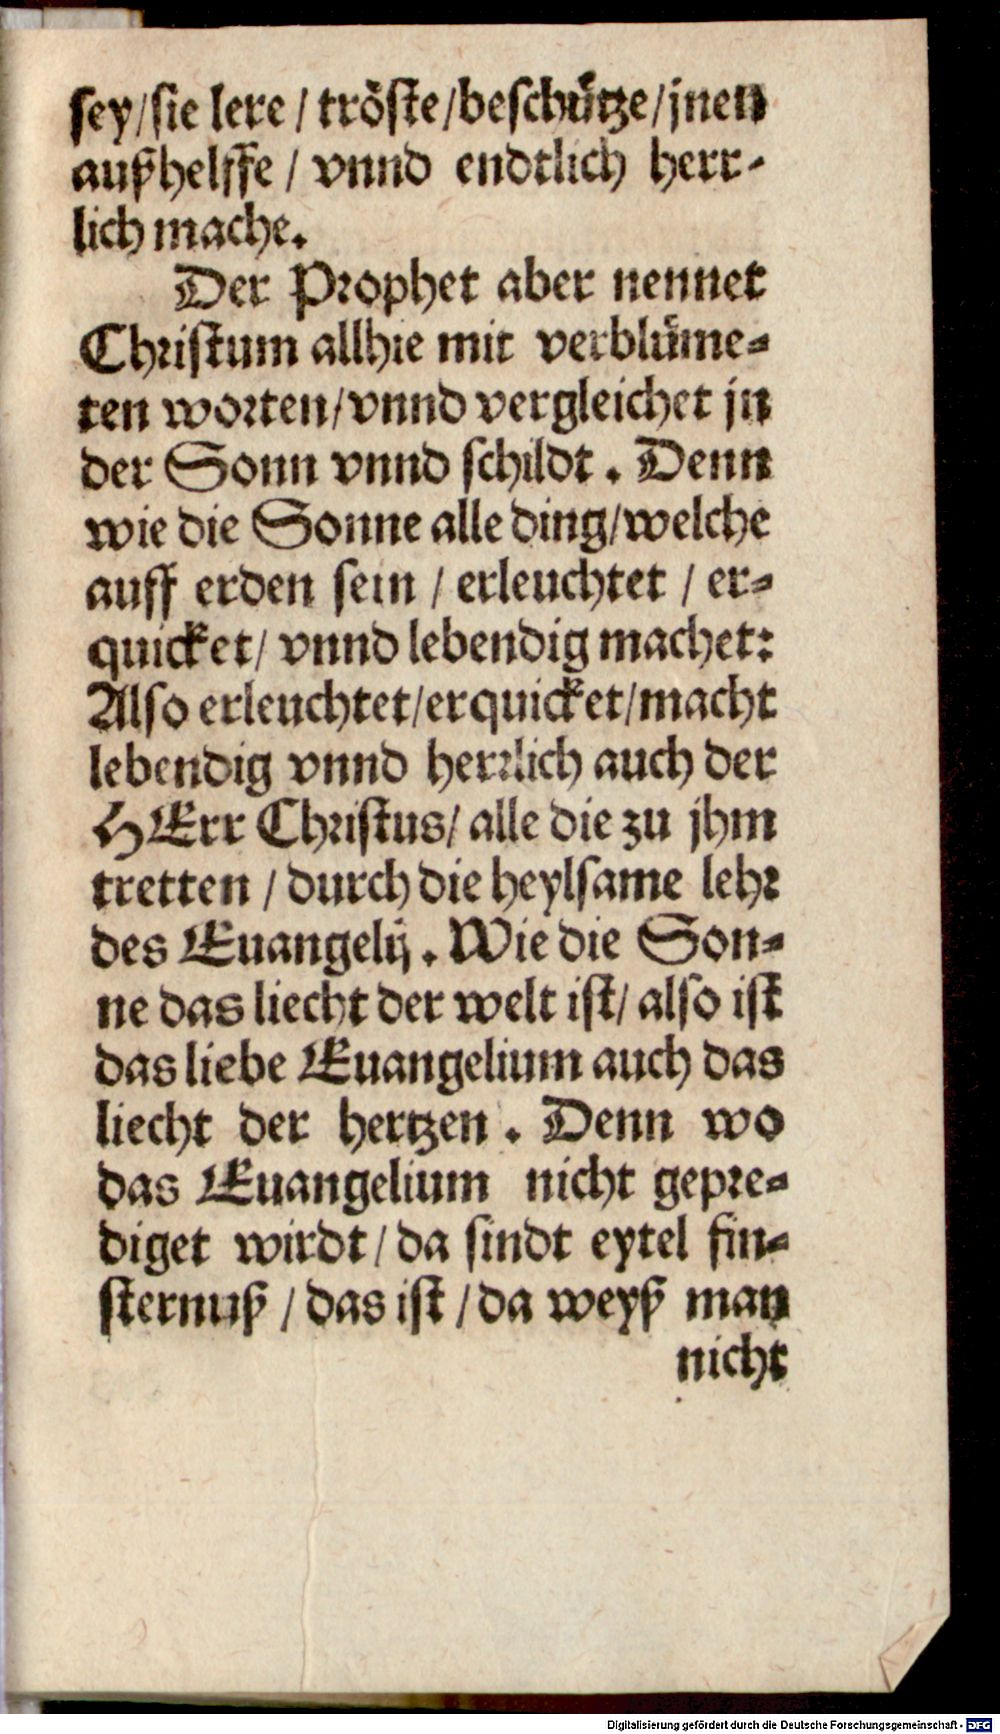 sey/sie lere / tröste/beschütze/jnen
außhelffe / vnnd endtlich herr-
lich mache.
Der Prophet aber nennet
Christum allhie mit verblüme-
ten worten/vnnd vergleichet jn
der Sonn vnnd schildt. Denn
wie die Sonne alle ding/welche
auff erden sein / erleuchtet / er-
quicket/ vnnd lebendig machet:
Also erleuchtet/erquicket/macht
lebendig vnnd herrlich auch der
HErr Christus/ alle die zu jhm
tretten / durch die heylsame lehr
des Euangelij. Wie die Son-
ne das liecht der welt ist/ also ist
das liebe Euangelium auch das
liecht der hertzen. Denn wo
das Euangelium nicht gepre-
diget wirdt/ da sindt eytel fin-
sternuß / das ist / da weyß man
nicht
Digitalisierung gefördert durch die Deutsche Forschungsgemeinschaft - DFG